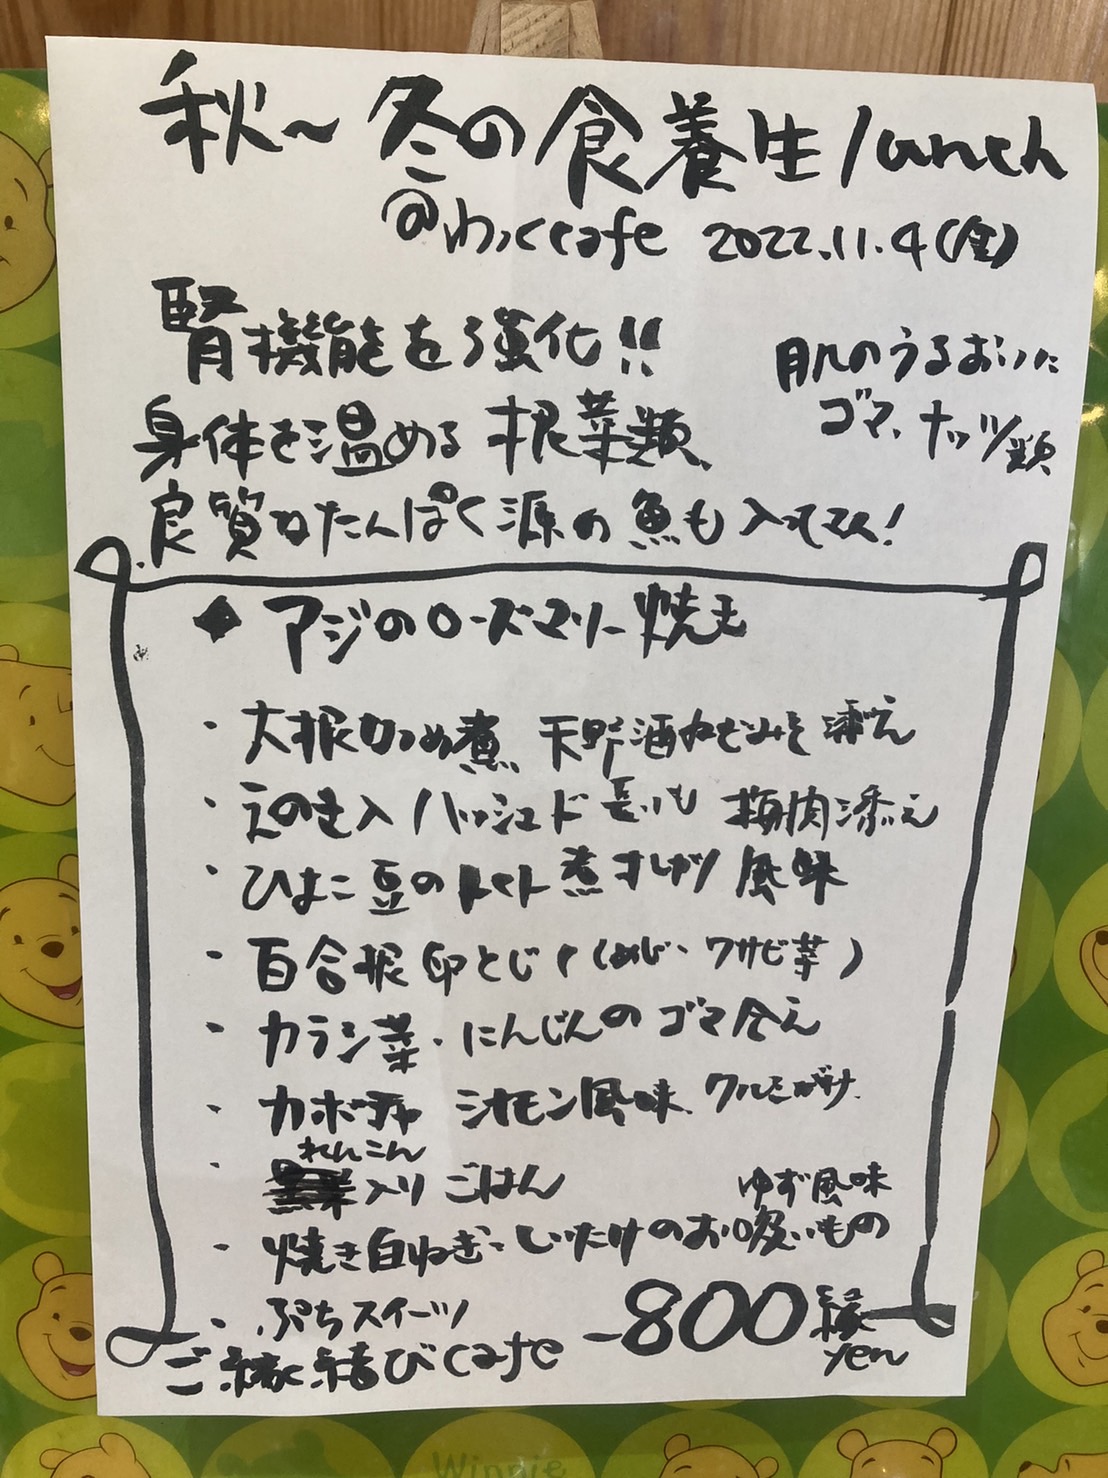 秋〜冬の食養生lunch
@わっくcafe 2022.11.4(金)
腎機能を強化!!
身体を温める根菜類、
肌のうるおいに
ゴマ、ナッツ類
良質なたんぱく源の魚も入れてます!
◆アジのローズマリー焼き
・大根かつめ煮 天野酒ねぎみそ添え
・えのき入ハッシュド長いも 梅肉添え
・ひよこ豆のトマト煮 風味
・百合根卵とじ (しめじ・ワサビ菜)
・カラシ菜・にんじんのゴマ合え
・カボチャ シナモン風味 クルミがけ
・れんこん入りごはん
ゆず風味
・焼き白ねぎ・しいたけのお吸いもの
・ぷちスイーツ
800縁
yen
ご縁結びcafe
Winnie